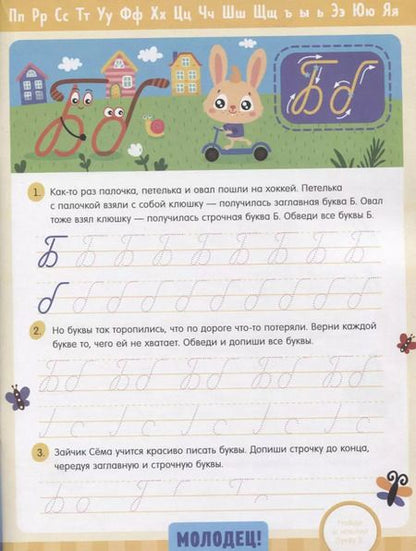 Пп Рр Сс Тт Уу Фф Хх Цц Чч Шш Щщ ъ ы ь Ээ Юю Яя
Б б
Б б
1. Как-то раз палочка, петелька и овал пошли на хоккей. Петелька
с палочкой взяли с собой клюшку — получилась заглавная буква Б. Овал
тоже взял клюшку — получилась строчная буква Б. Обведи все буквы Б.
Б Б Б Б Б Б Б Б
б б б б б б б б б б
2. Но буквы так торопились, что по дороге что-то потеряли. Верни каждой
букве то, чего ей не хватает. Обведи и допиши все буквы.
Бб Бб Бб Бб Бб
3. Зайчик Сёма учится красиво писать буквы. Допиши строчку до конца,
чередуя заглавную и строчную буквы.
МОЛОДЕЦ!